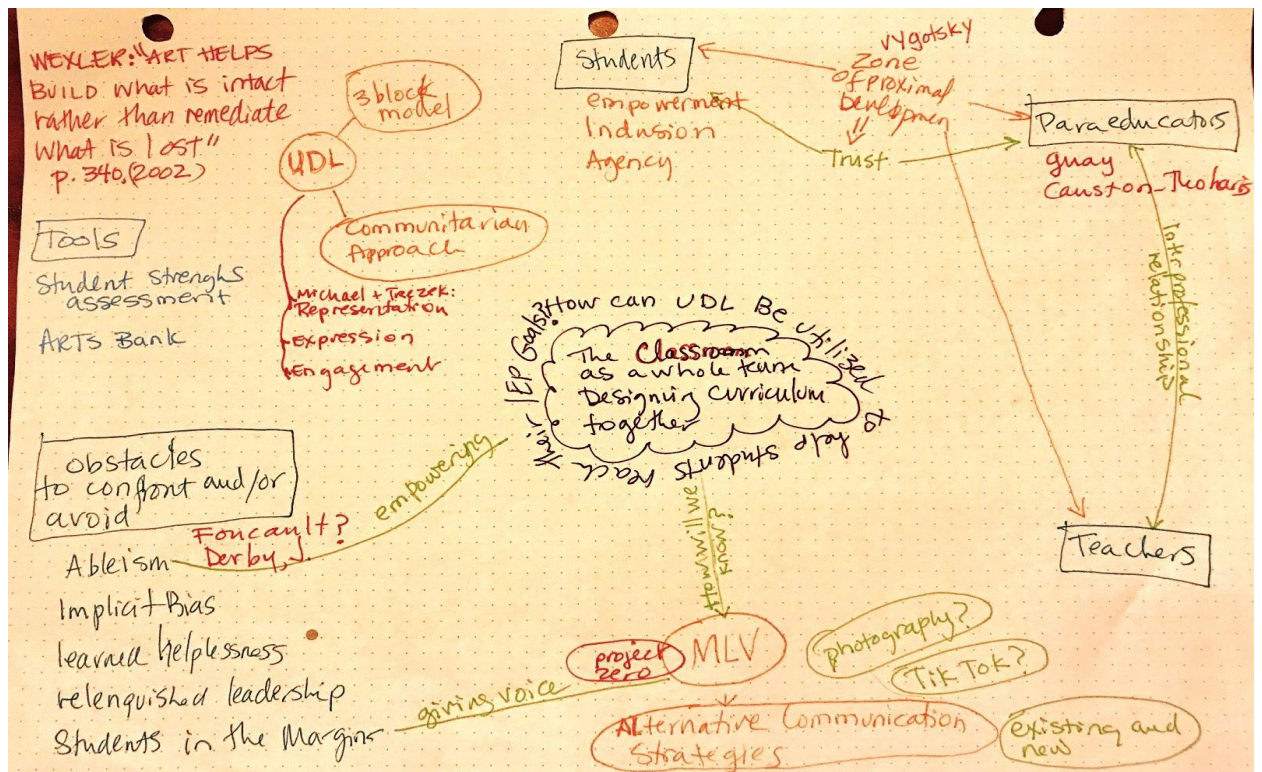 WEXLER: "ART HELPS
BUILD what is intact
rather than remediate
what is lost"
p. 340, (2002)
3 block
model
UDL
Communitarian
Approach
Michael + Trezek:
Representation
Expression
Engagement
Tools
Student Strenghs
assessment
ARTS Bank
Students
empowerment
Inclusion
Agency
Vygotsky
Zone
of proximal
Development
Trust
Paraeducators
guay
Causton-Theoharis
Interprofessional
relationship
Teachers
How can UDL Be utilized to help students reach their IEP Goals?
The Classroom
as a whole team
Designing curriculum
together
obstacles
to confront and/or
avoid
empowering
Foucault?
Derby, J.
Ableism
Implicit Bias
learned helplessness
relenquished leadership
Students in the Margins
giving voice
How will we
know?
project
zero
MLV
photography?
Tik Tok?
ALternative Communication
Strategies
existing and
new